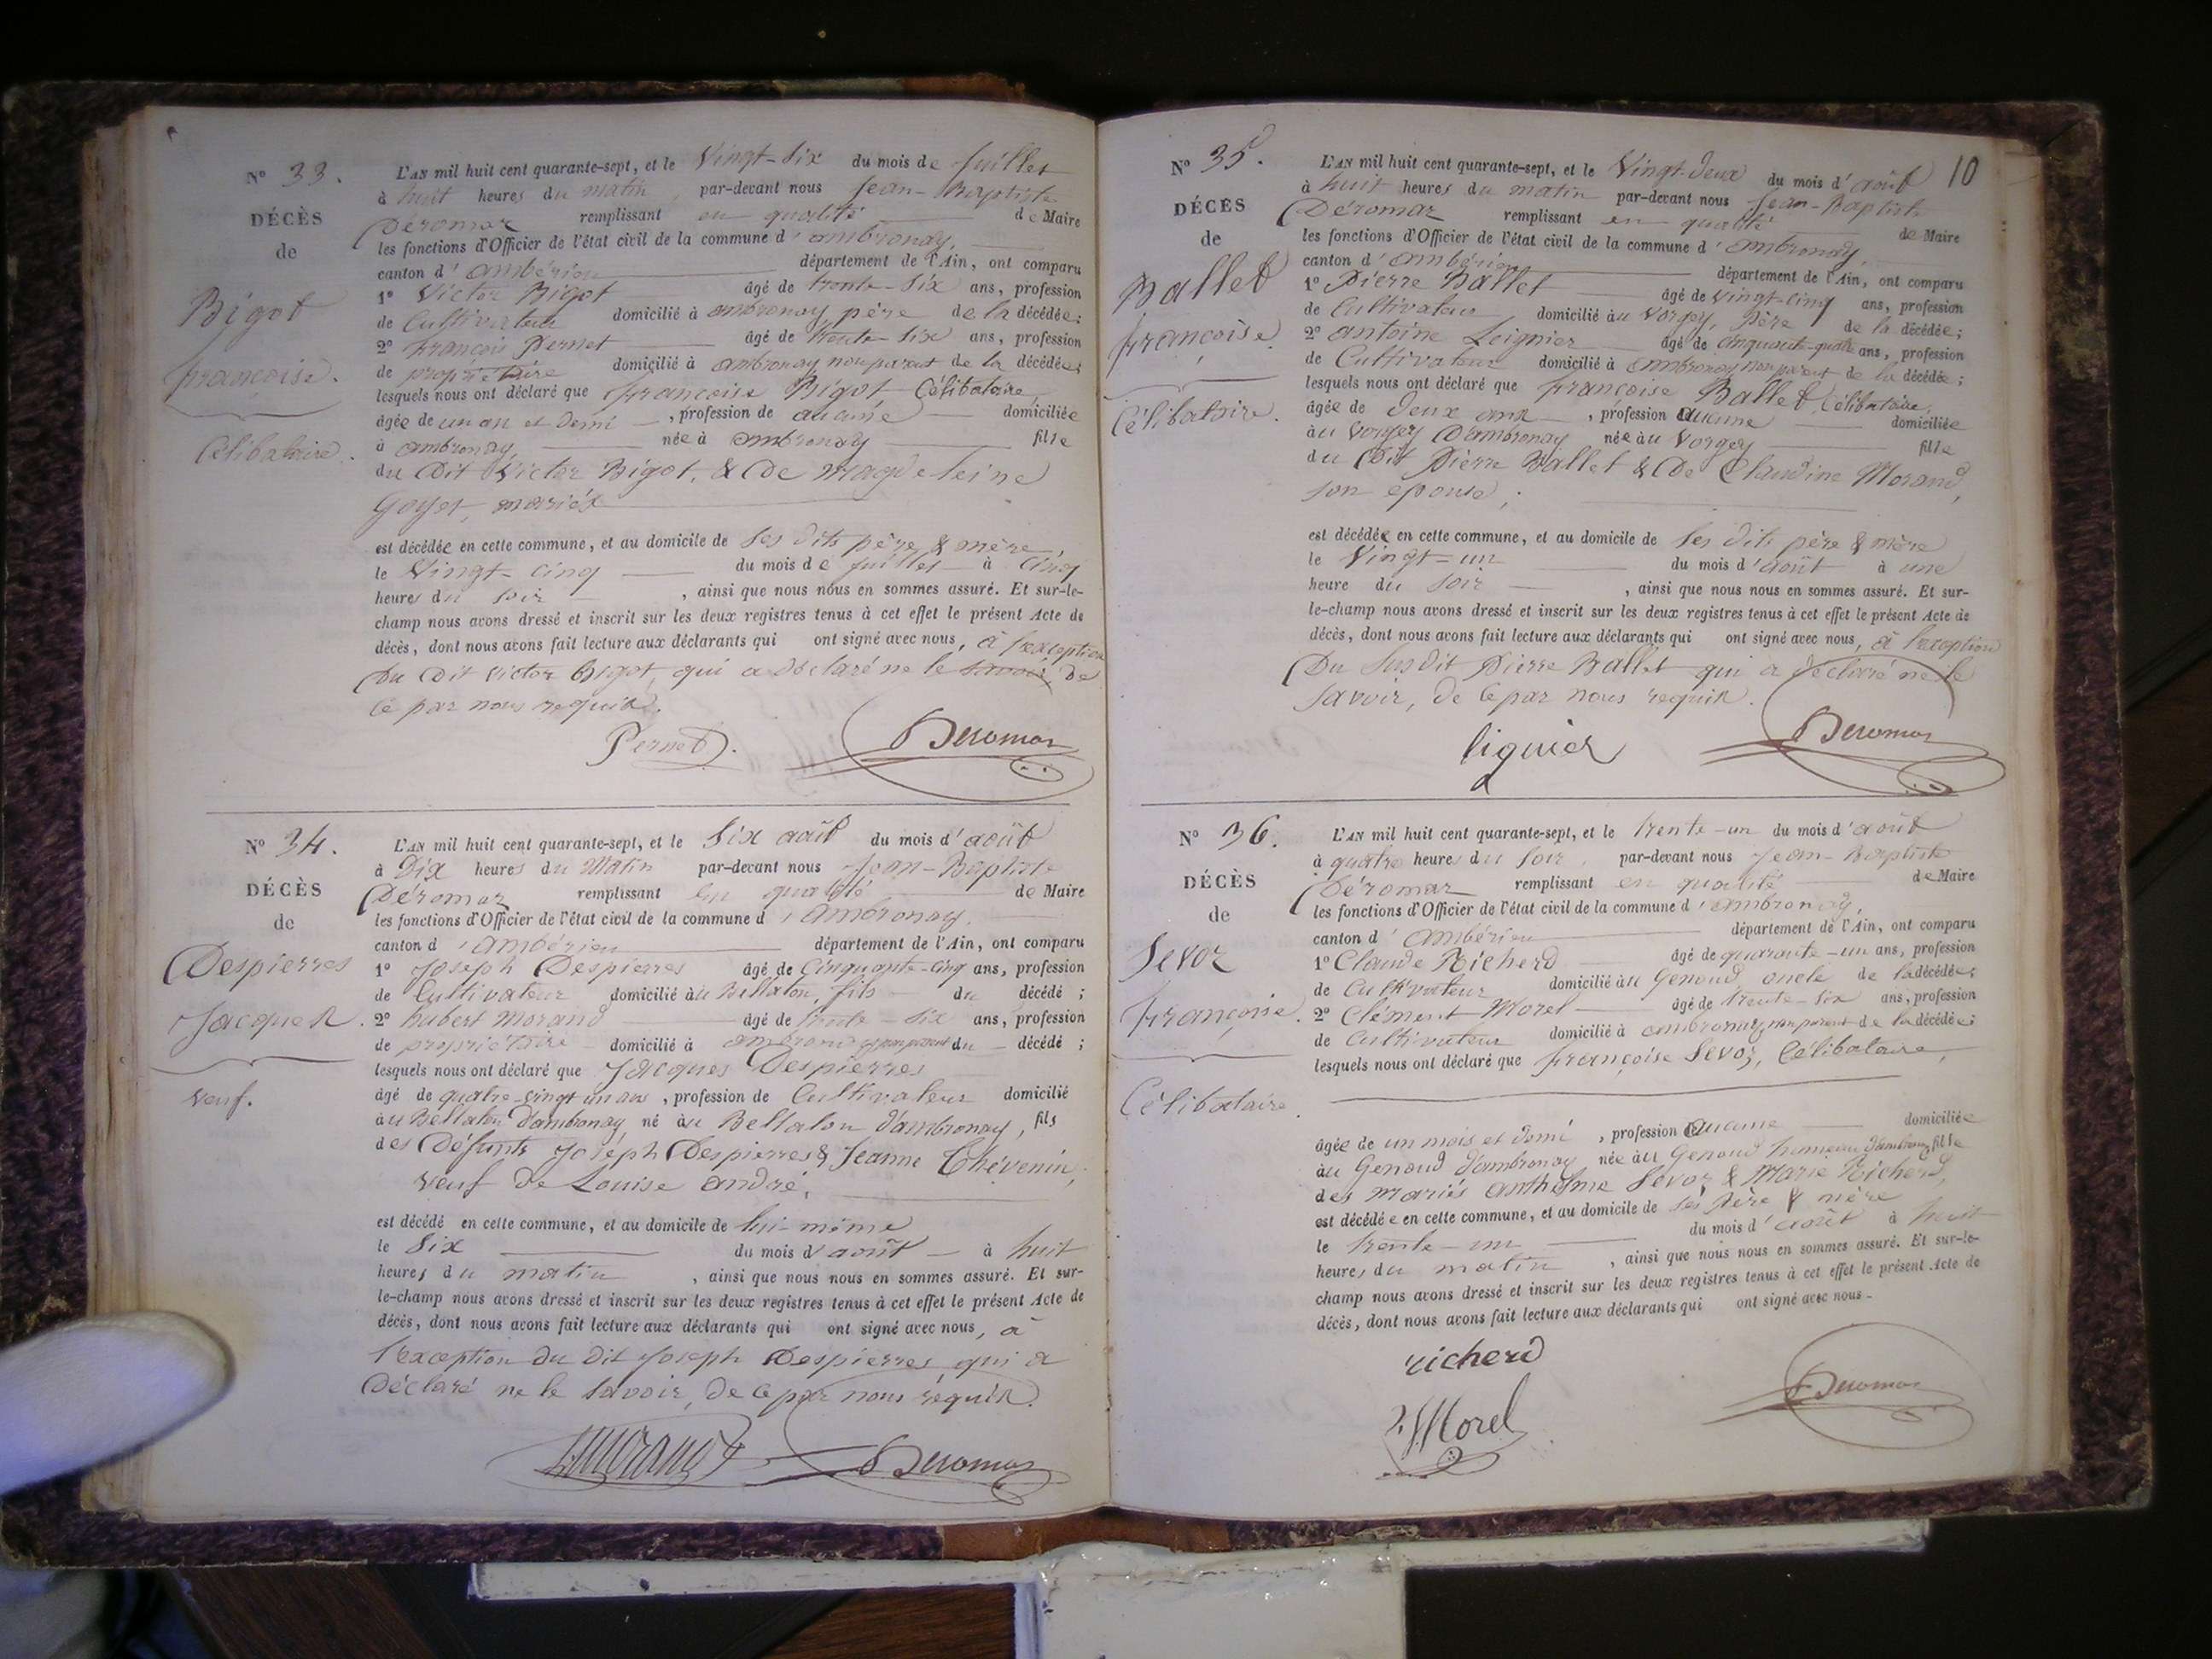 N° 33.
DÉCÈS
de
Bigot
françoise.
Célibataire.
L'AN mil huit cent quarante-sept, et le Vingt-Six du mois de Juillet
à huit heures du matin, par-devant nous Jean-Baptiste
Déromas remplissant en qualité de Maire
les fonctions d'Officier de l'état civil de la commune d'ambronay,
canton d'ambérieu département de l'Ain, ont comparu
1° Victor Bigot âgé de trente-Six ans, profession
de Cultivateur domicilié à ambronay père de la décédée;
2° François Pernet âgé de trente-six ans, profession
de propriétaire domicilié à ambronay non parent de la décédée;
lesquels nous ont déclaré que françoise Bigot Célibataire
âgée de un an et demi, profession de aucune domiciliée
à ambronay, née à ambronay fille
du Dit Victor Bigot, & De magdeleine
Goyet, mariés
est décédée en cette commune, et au domicile de ses dits père & mère,
le Vingt-cinq du mois de juillet à cinq
heures du soir, ainsi que nous nous en sommes assuré. Et sur-le-
champ nous avons dressé et inscrit sur les deux registres tenus à cet effet le présent Acte de
décès, dont nous avons fait lecture aux déclarants qui ont signé avec nous, à l'exception
Du Dit Victor Bigot, qui a Déclaré ne le savoir, de
ce par nous requis.
Pernet. Deromas
N° 34.
DÉCÈS
de
Despierres
Jacques.
veuf.
L'AN mil huit cent quarante-sept, et le Six août du mois d'août
à Dix heures du Matin par-devant nous Jean-Baptiste
Déromas remplissant en qualité de Maire
les fonctions d'Officier de l'état civil de la commune d'ambronay,
canton d'ambérieu département de l'Ain, ont comparu
1° Joseph Despierres âgé de Cinquante-cinq ans, profession
de Cultivateur domicilié au Bellaton, fils du décédé;
2° hubert Morand âgé de trente-six ans, profession
de propriétaire domicilié à ambronay non parent du décédé;
lesquels nous ont déclaré que Jacques Despierres
âgé de quatre-vingt un ans, profession de Cultivateur domicilié
au Bellaton d'ambronay né au Bellaton d'ambronay, fils
des Défunts Joseph Despierres & Jeanne Thévenin,
veuf de Louise andré,
est décédé en cette commune, et au domicile de lui-même
le Six du mois d'août à huit
heures du matin, ainsi que nous nous en sommes assuré. Et sur-
le-champ nous avons dressé et inscrit sur les deux registres tenus à cet effet le présent Acte de
décès, dont nous avons fait lecture aux déclarants qui ont signé avec nous, à
l'exception du dit Joseph Despierres, qui a
Déclaré ne le savoir, de ce par nous requis.
Morand Deromas
10
N° 35.
DÉCÈS
de
Ballet
françoise.
Célibataire.
L'AN mil huit cent quarante-sept, et le Vingt-Deux du mois d'août
à huit heures du matin par-devant nous Jean-Baptiste
Déromas remplissant en qualité de Maire
les fonctions d'Officier de l'état civil de la commune d'ambronay,
canton d'ambérieu département de l'Ain, ont comparu
1° Pierre Ballet âgé de Vingt-cinq ans, profession
de Cultivateur domicilié au Vorgey, Père de la décédée;
2° antoine Leignier âgé de cinquante-quatre ans, profession
de Cultivateur domicilié à ambronay non parent de la décédée;
lesquels nous ont déclaré que françoise Ballet, Célibataire,
âgée de Deux ans, profession aucune domiciliée
au Vorgey d'ambronay née au Vorgey fille
du Dit Pierre Ballet & De Claudine Morand,
son épouse;
est décédée en cette commune, et au domicile de ses dits père & mère
le Vingt-un du mois d'août à une
heure du soir, ainsi que nous nous en sommes assuré. Et sur-
le-champ nous avons dressé et inscrit sur les deux registres tenus à cet effet le présent Acte de
décès, dont nous avons fait lecture aux déclarants qui ont signé avec nous, à l'exception
Du Susdit Pierre Ballet qui a déclaré ne le
savoir, de ce par nous requis.
liguier Deromas
N° 36.
DÉCÈS
de
Sevoz
françoise.
Célibataire.
L'AN mil huit cent quarante-sept, et le trente-un du mois d'août
à quatre heures du soir, par-devant nous Jean-Baptiste
Déromas remplissant en qualité de Maire
les fonctions d'Officier de l'état civil de la commune d'ambronay,
canton d'ambérieu département de l'Ain, ont comparu
1° Claude Richerd âgé de quarante-un ans, profession
de Cultivateur domicilié au Genoud oncle de la décédée;
2° Clément Morel âgé de trente-six ans, profession
de Cultivateur domicilié à ambronay, non parent de la décédée;
lesquels nous ont déclaré que françoise Sevoz, Célibataire,
âgée de un mois et demi, profession aucune domiciliée
au Genoud d'ambronay née au Genoud hameau d'ambronay fille
des mariés anthelme Sevoz & Marie Richerd,
est décédée en cette commune, et au domicile de ses Père & mère
le trente-un du mois d'août à huit
heures du matin, ainsi que nous nous en sommes assuré. Et sur-le-
champ nous avons dressé et inscrit sur les deux registres tenus à cet effet le présent Acte de
décès, dont nous avons fait lecture aux déclarants qui ont signé avec nous.
richerd
Morel Deromas